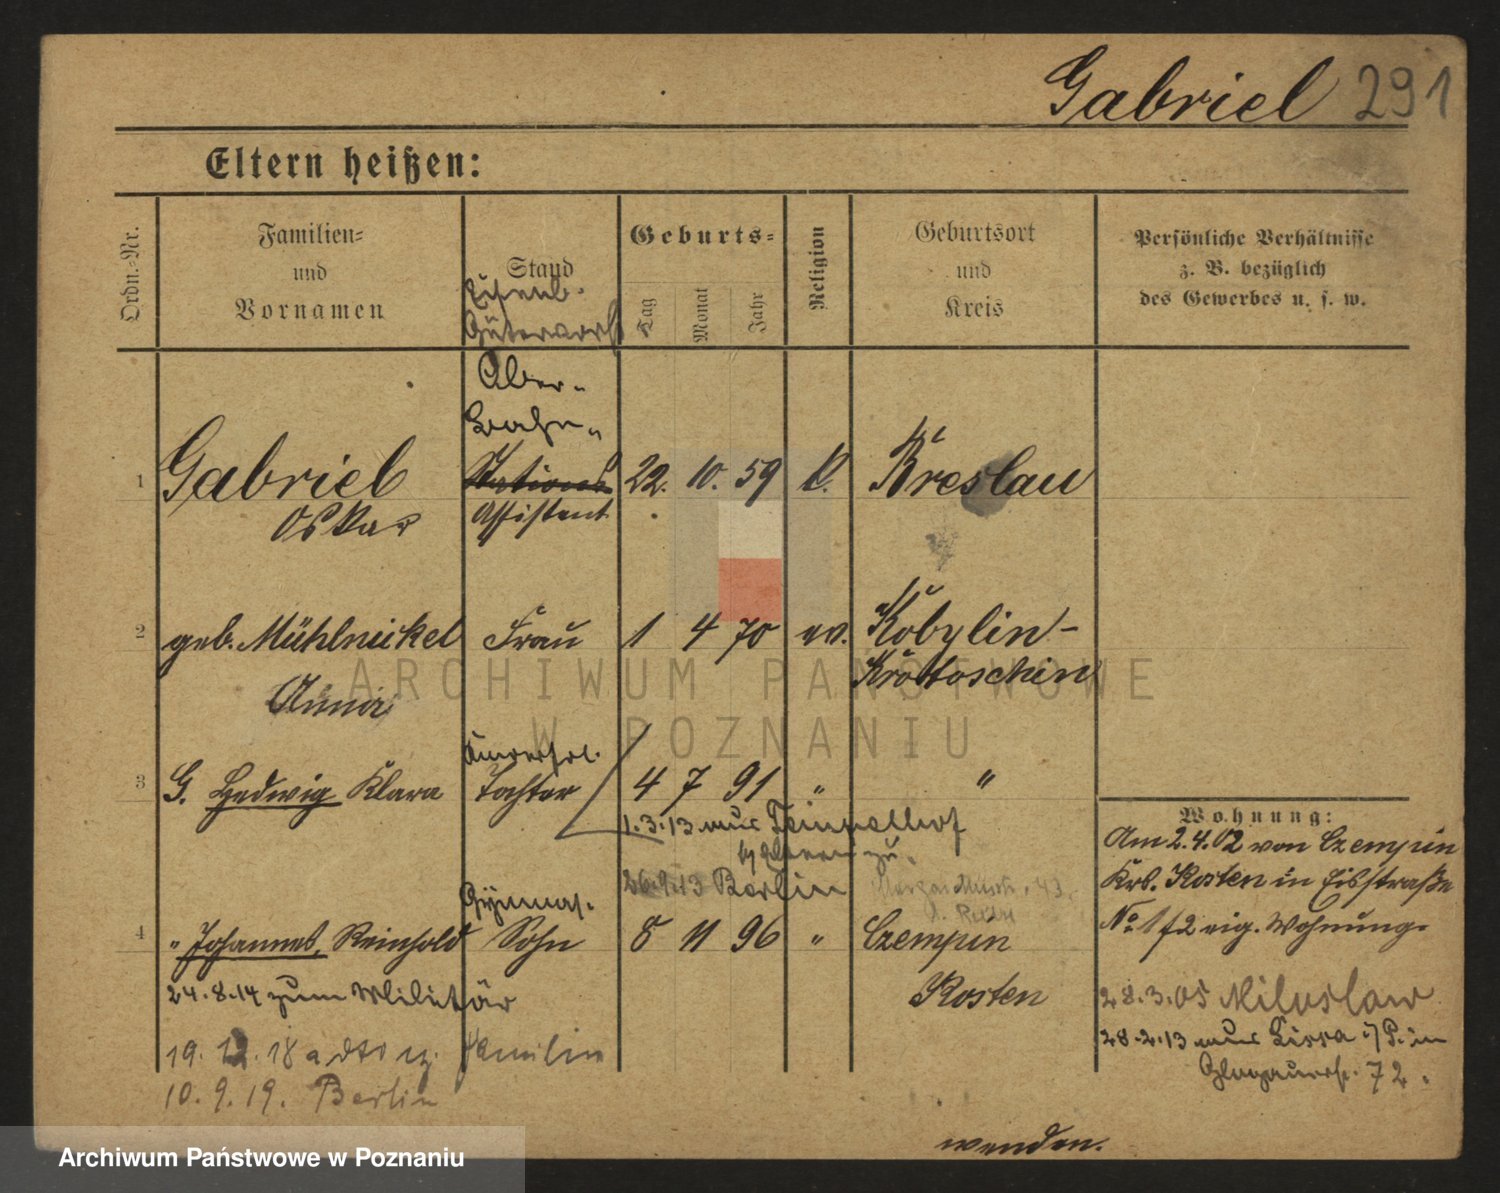 Gabriel 291
Eltern heißen:
Ordn.-Nr.
Familien-
und
Vornamen
Stand
Eisenb.
Gütervorst
Geburts-
Tag
Monat
Jahr
Religion
Geburtsort
und
Kreis
Persönliche Verhältnisse
z. B. bezüglich
des Gewerbes u. s. w.
Ober-
Bahn-
1 Gabriel Stations 22. 10. 59 k. Breslau
Oskar Assistent
2 geb. Mühlnickel Frau 1 4 70 ev. Kobylin-
Anna Krotoschin
3 G. Hedwig Klara Tochter 4 7 91 " "
1.3.13 aus
26.9.13 Berlin
Gymnas.
4 " Johannes Reinhold Sohn 8 11 96 " Czempin
Kosten
24.8.14 zum Militär
19.12.18 z. Familie
10.9.19. Berlin
Wohnung:
Am 2.4.02 von Czempin
Krs. Kosten in
No 1/2 eig. Wohnung.
28.3.05 Miloslaw
28.2.13 aus Lissa i/P. in
Glogauerstr. 72.
wenden.
ARCHIWUM PAŃSTWOWE
W POZNANIU
Archiwum Państwowe w Poznaniu